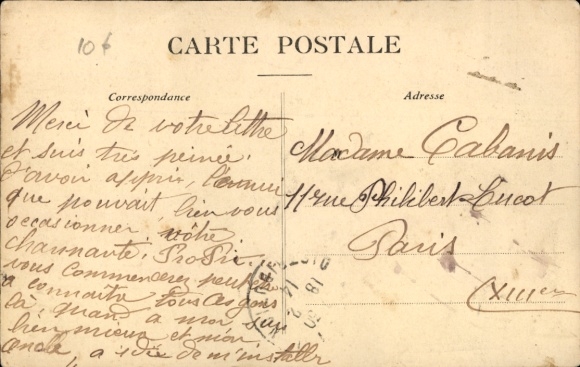 10f
CARTE POSTALE
Correspondance
Adresse
Merci de votre lettre
et suis très peinée
d'avoir appris, l'ennui
que pouvait, bien vous
occasionner, vôtre
charmante, Proprio.
vous commencerez peut être
a connaitre tous ces gens
là quand a moi
bien mieux et mon
oncle, a idée de m'installer
Madame Cabanis
11 rue Philibert-Lucot
Paris
XIIIem